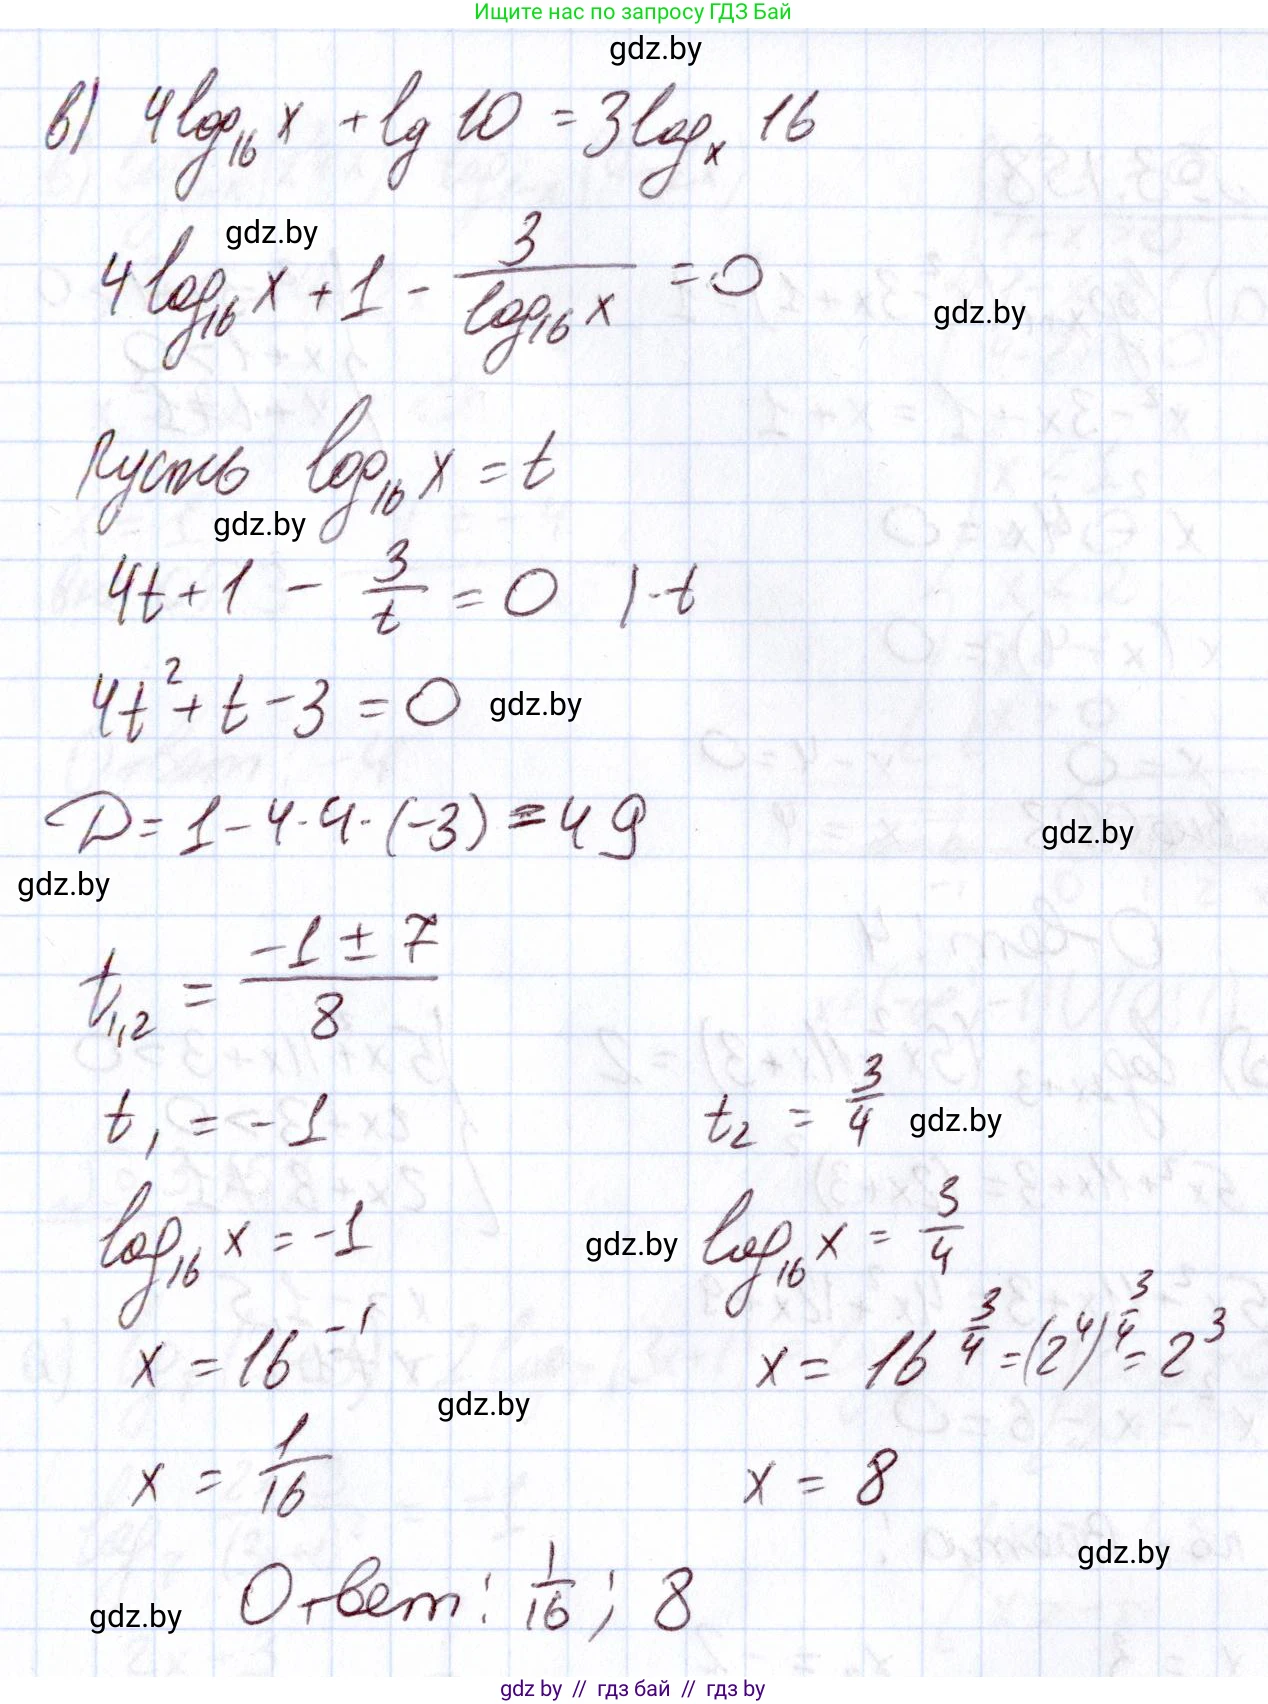 Ищите нас по запросу ГДЗ Бай
gdz.by
в) 4log₁₆ x + lg 10 = 3logₓ 16
gdz.by
4log₁₆ x + 1 - 3/(log₁₆ x) = 0
gdz.by
Пусть log₁₆ x = t
gdz.by
4t + 1 - 3/t = 0 | · t
4t² + t - 3 = 0
gdz.by
D = 1 - 4 · 4 · (-3) = 49
gdz.by
gdz.by
t₁,₂ = (-1 ± 7)/8
t₁ = -1 t₂ = 3/4
gdz.by
log₁₆ x = -1 gdz.by log₁₆ x = 3/4
x = 16⁻¹ x = 16^(3/4) = (2⁴)^(3/4) = 2³
gdz.by
x = 1/16 x = 8
gdz.by
Ответ: 1/16; 8
gdz.by
gdz by // гдз бай // гдз by